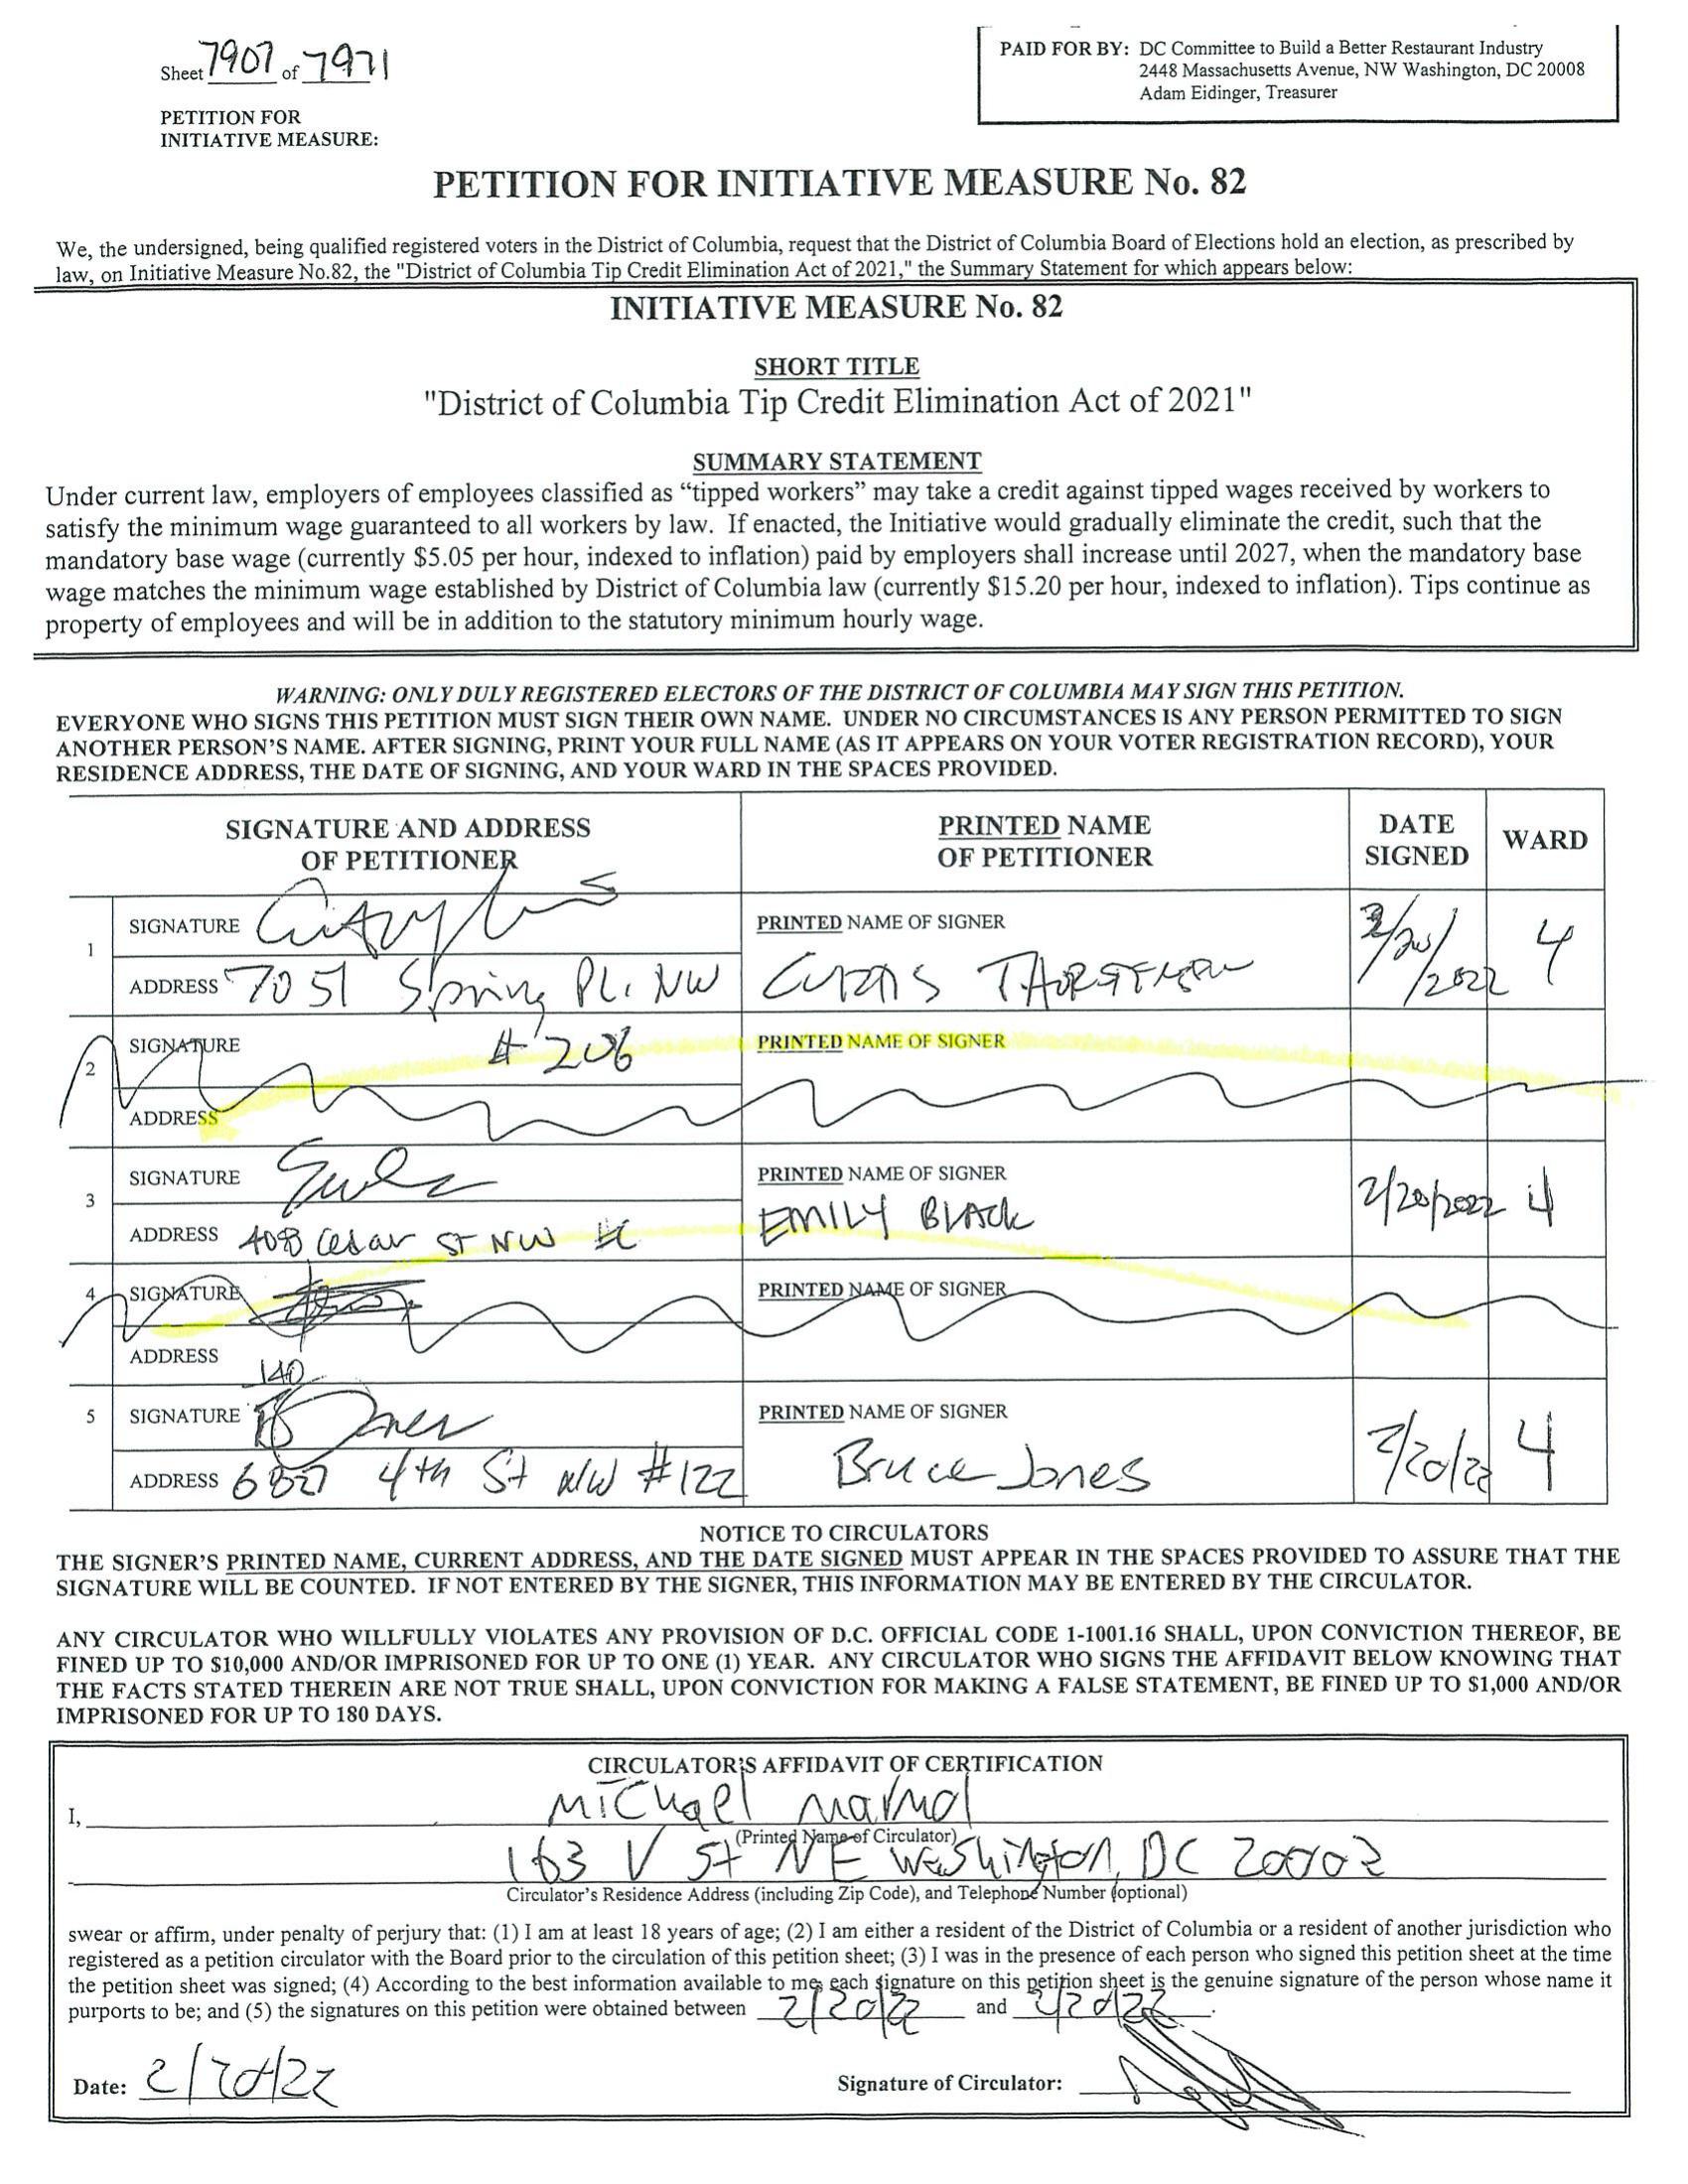 Sheet 7907 of 7971
PAID FOR BY: DC Committee to Build a Better Restaurant Industry
2448 Massachusetts Avenue, NW Washington, DC 20008
Adam Eidinger, Treasurer
PETITION FOR
INITIATIVE MEASURE:
PETITION FOR INITIATIVE MEASURE No. 82
We, the undersigned, being qualified registered voters in the District of Columbia, request that the District of Columbia Board of Elections hold an election, as prescribed by
law, on Initiative Measure No.82, the "District of Columbia Tip Credit Elimination Act of 2021," the Summary Statement for which appears below:
INITIATIVE MEASURE No. 82
SHORT TITLE
"District of Columbia Tip Credit Elimination Act of 2021"
SUMMARY STATEMENT
Under current law, employers of employees classified as “tipped workers” may take a credit against tipped wages received by workers to
satisfy the minimum wage guaranteed to all workers by law. If enacted, the Initiative would gradually eliminate the credit, such that the
mandatory base wage (currently $5.05 per hour, indexed to inflation) paid by employers shall increase until 2027, when the mandatory base
wage matches the minimum wage established by District of Columbia law (currently $15.20 per hour, indexed to inflation). Tips continue as
property of employees and will be in addition to the statutory minimum hourly wage.
WARNING: ONLY DULY REGISTERED ELECTORS OF THE DISTRICT OF COLUMBIA MAY SIGN THIS PETITION.
EVERYONE WHO SIGNS THIS PETITION MUST SIGN THEIR OWN NAME. UNDER NO CIRCUMSTANCES IS ANY PERSON PERMITTED TO SIGN
ANOTHER PERSON'S NAME. AFTER SIGNING, PRINT YOUR FULL NAME (AS IT APPEARS ON YOUR VOTER REGISTRATION RECORD), YOUR
RESIDENCE ADDRESS, THE DATE OF SIGNING, AND YOUR WARD IN THE SPACES PROVIDED.
SIGNATURE AND ADDRESS
OF PETITIONER
PRINTED NAME
OF PETITIONER
DATE
SIGNED
WARD
1
SIGNATURE
PRINTED NAME OF SIGNER
ADDRESS 7051 Spring Pl. NW
2/20/2022
4
2
SIGNATURE #206
PRINTED NAME OF SIGNER
ADDRESS
3
SIGNATURE
PRINTED NAME OF SIGNER
ADDRESS 408 Cedar ST NW
EMILY BLACK
2/20/2022
4
4
SIGNATURE
PRINTED NAME OF SIGNER
ADDRESS
140
5
SIGNATURE B Jones
PRINTED NAME OF SIGNER
ADDRESS 4th St NW #122
Bruce Jones
2/20/22
4
NOTICE TO CIRCULATORS
THE SIGNER'S PRINTED NAME, CURRENT ADDRESS, AND THE DATE SIGNED MUST APPEAR IN THE SPACES PROVIDED TO ASSURE THAT THE
SIGNATURE WILL BE COUNTED. IF NOT ENTERED BY THE SIGNER, THIS INFORMATION MAY BE ENTERED BY THE CIRCULATOR.
ANY CIRCULATOR WHO WILLFULLY VIOLATES ANY PROVISION OF D.C. OFFICIAL CODE 1-1001.16 SHALL, UPON CONVICTION THEREOF, BE
FINED UP TO $10,000 AND/OR IMPRISONED FOR UP TO ONE (1) YEAR. ANY CIRCULATOR WHO SIGNS THE AFFIDAVIT BELOW KNOWING THAT
THE FACTS STATED THEREIN ARE NOT TRUE SHALL, UPON CONVICTION FOR MAKING A FALSE STATEMENT, BE FINED UP TO $1,000 AND/OR
IMPRISONED FOR UP TO 180 DAYS.
CIRCULATOR'S AFFIDAVIT OF CERTIFICATION
I, Michael Marmol
(Printed Name of Circulator)
163 V St NE Washington, DC 20002
Circulator's Residence Address (including Zip Code), and Telephone Number (optional)
swear or affirm, under penalty of perjury that: (1) I am at least 18 years of age; (2) I am either a resident of the District of Columbia or a resident of another jurisdiction who
registered as a petition circulator with the Board prior to the circulation of this petition sheet; (3) I was in the presence of each person who signed this petition sheet at the time
the petition sheet was signed; (4) According to the best information available to me, each signature on this petition sheet is the genuine signature of the person whose name it
purports to be; and (5) the signatures on this petition were obtained between 2/20/22 and 2/20/22.
Date: 2/20/22
Signature of Circulator: